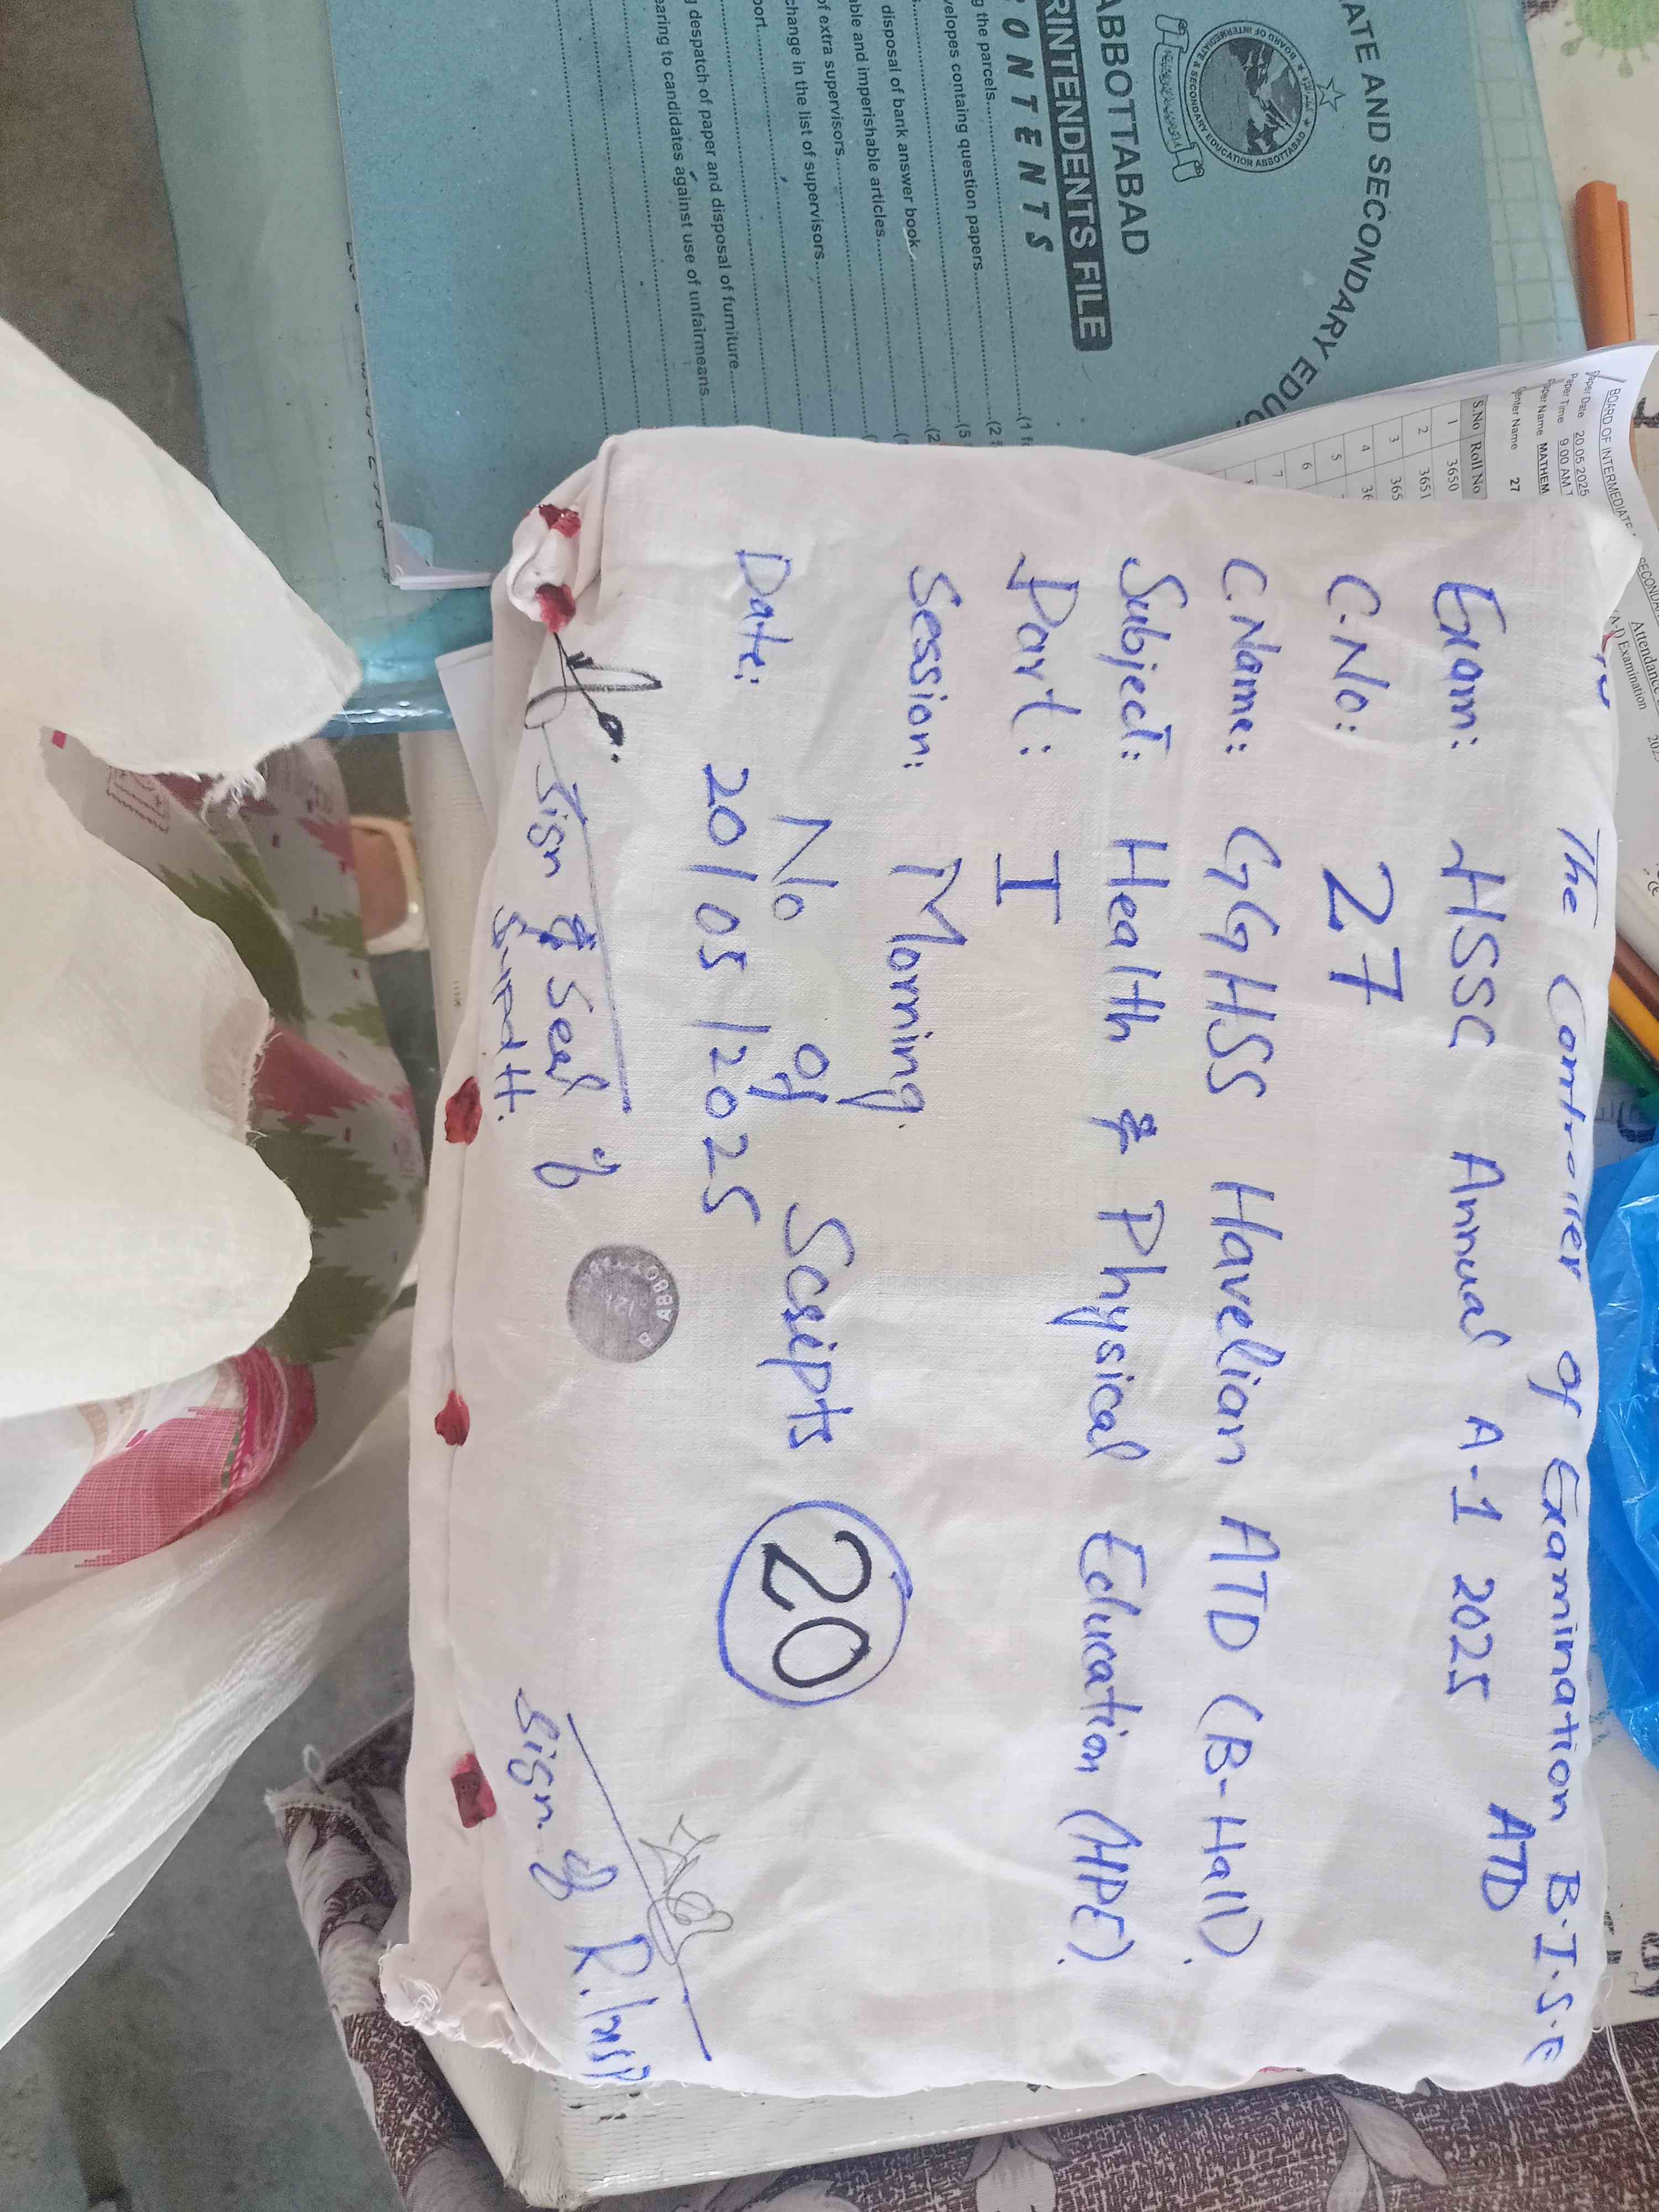 The Controller of Examination B.I.S.E
ATD
Exam: HSSC Annual A-1 2025
C.No: 27
C.Name: GGHSS Havelian ATD (B-Hall).
Subject: Health & Physical Education (HPE).
Part: I
Session: Morning.
No of Scripts 20
Date: 20/05/2025
Sign & Seal of
Supdtt.
Sign of R.Insp
ATE AND SECONDARY EDUC
BOARD OF INTERMEDIATE & SECONDARY EDUCATION ABBOTTABAD
ABBOTTABAD
RINTENDENTS FILE
CONTENTS
g the parcels
velopes containg question papers
disposal of bank answer book
able and imperishable articles
of extra supervisors
change in the list of supervisors
port
g despatch of paper and disposal of furniture
earing to candidates against use of unfairmeans
BOARD OF INTERMEDIATE
SECONDAR
Attendance
(A-I) Examination
Paper Date 20.05.2025
Paper Time 9.00 AM T
Paper Name MATHEM
enter Name 27
S.No Roll No
1 3650
2 3651
3 365
4 36
5
6
7